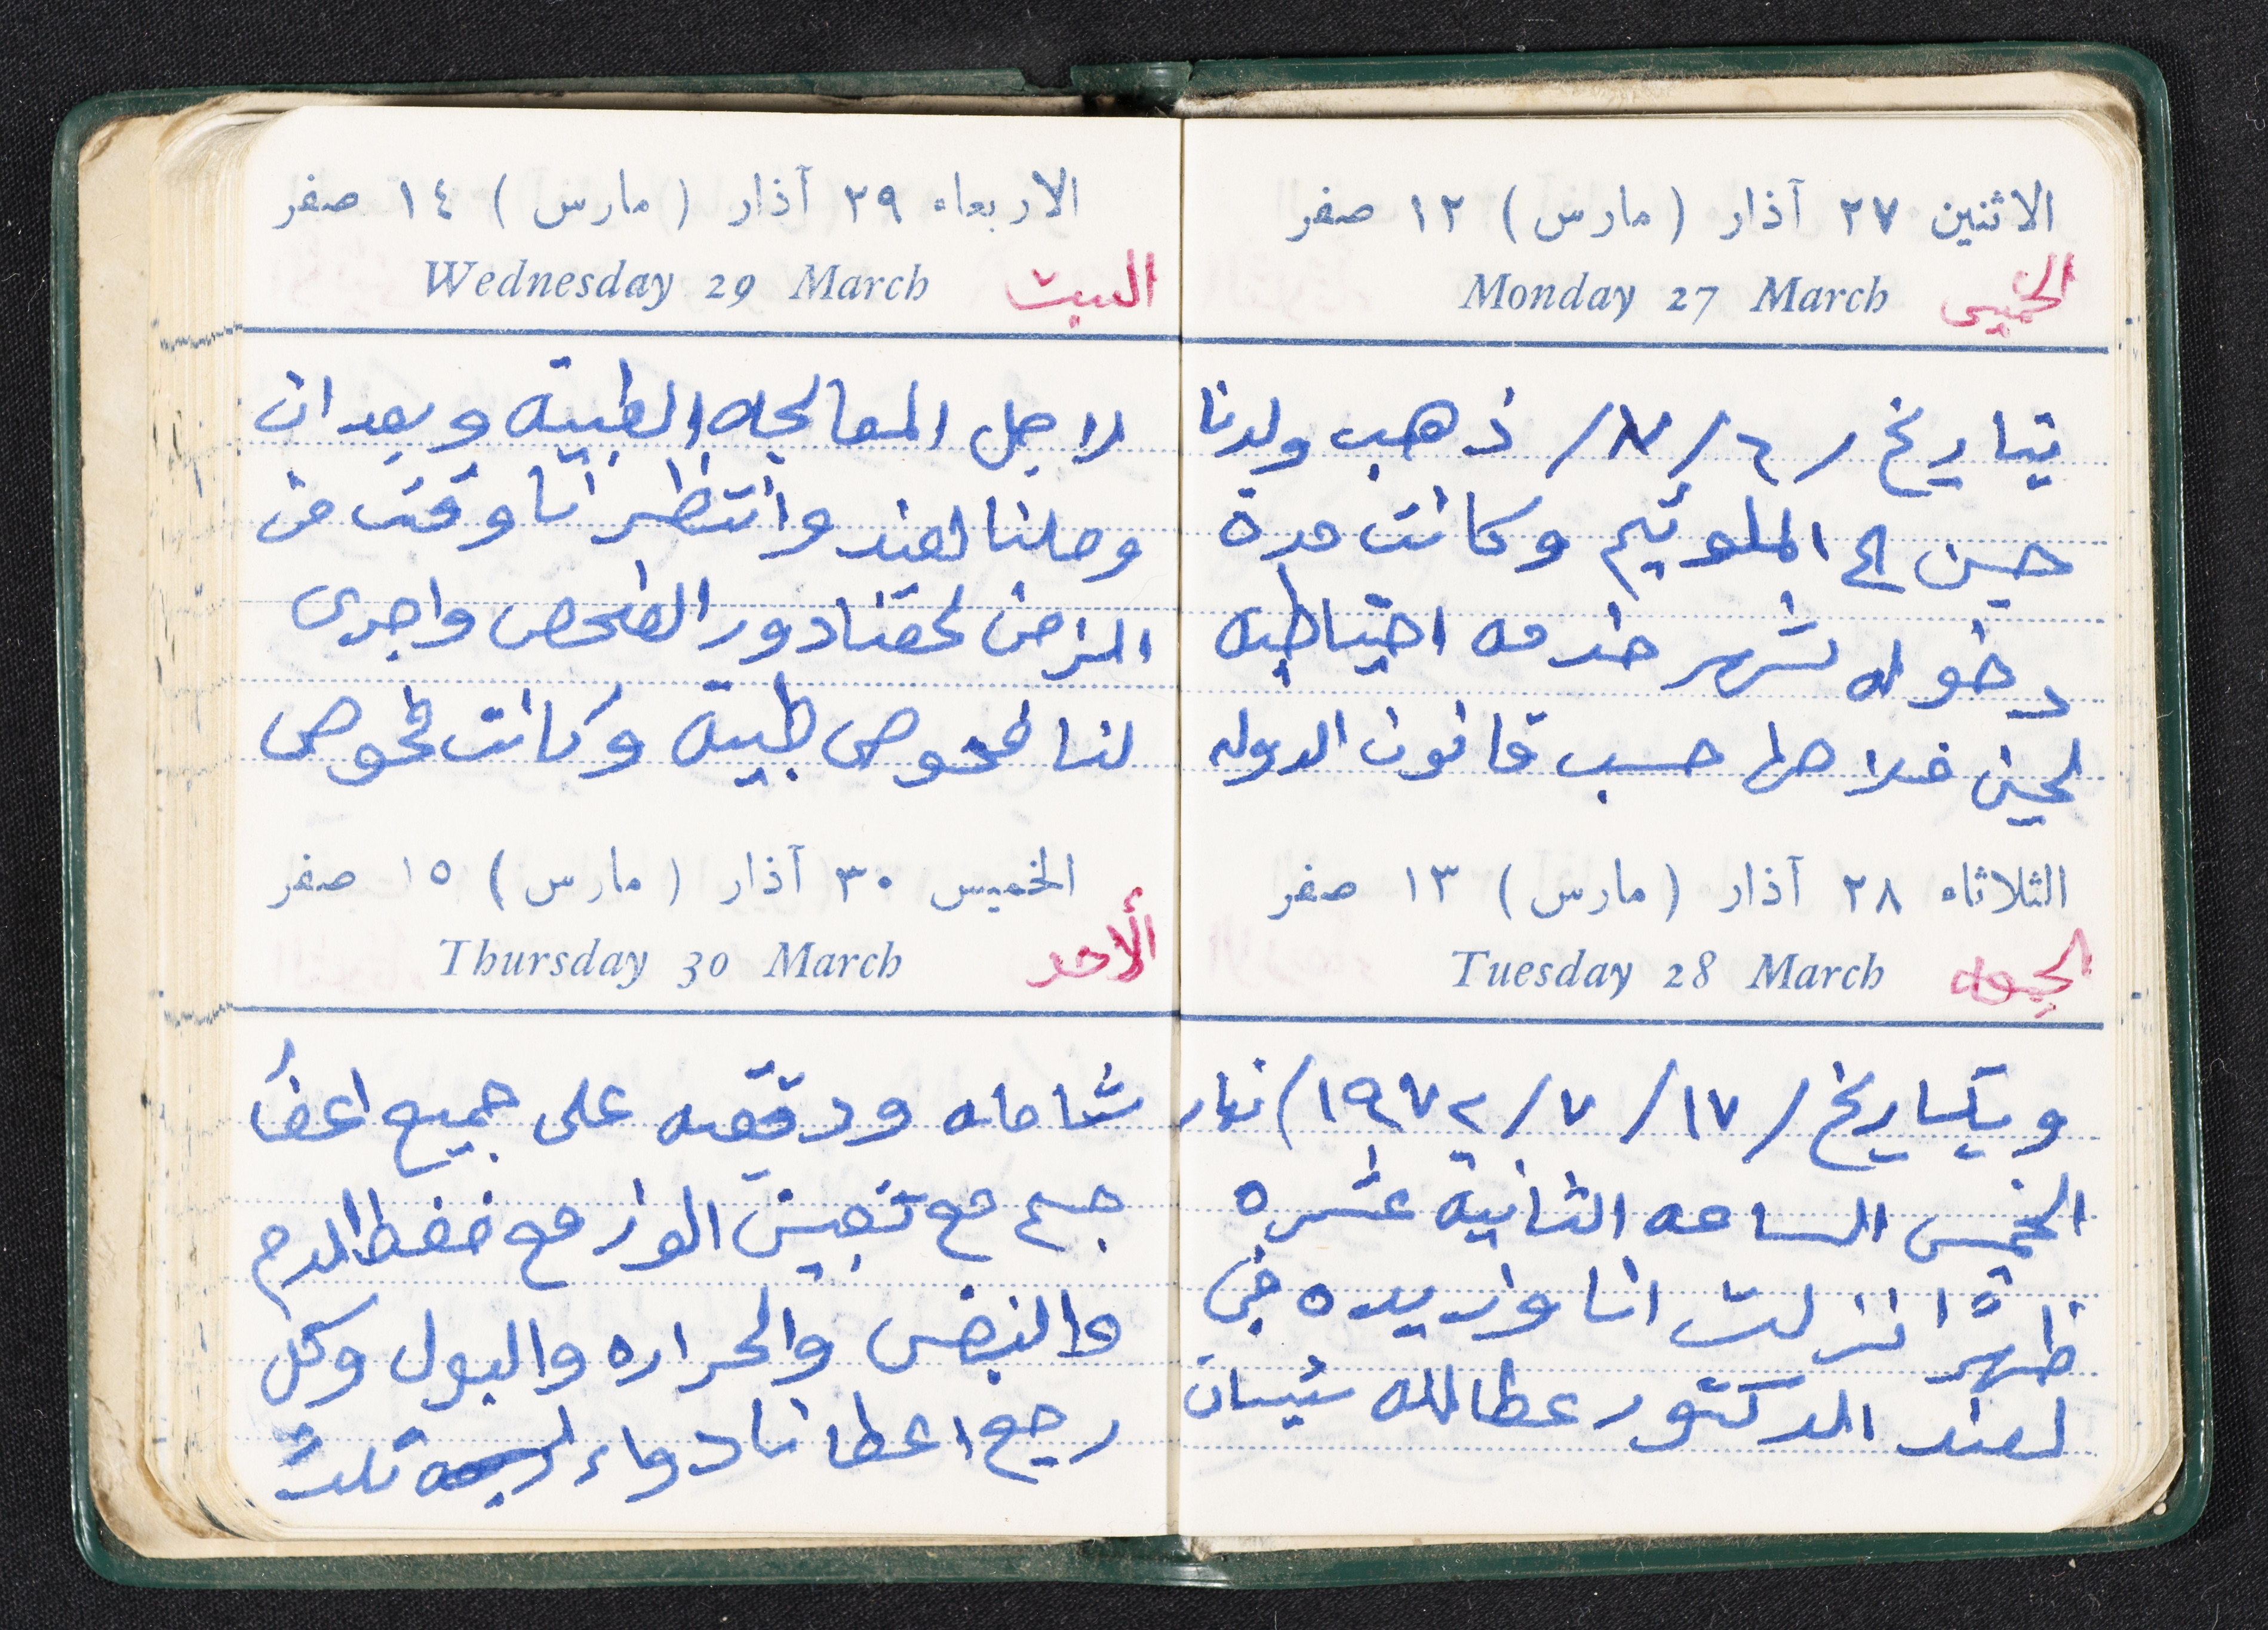 الاثنين ٢٧ آذار (مارس) ١٢ صفر
Monday 27 March الخميس
بتاريخ /٦/٨/ ذهب ولدنا
حسن الى الملوئيم وكانت مدة
دخوله لشهر خدمه احتياطيه
لحين خلاصها حسب قانون الدوله
الثلاثاء ٢٨ آذار (مارس) ١٣ صفر
Tuesday 28 March الجمعه
وبتاريخ /١٧/٧/١٩٧٢/ نهار
الخميس الساعه الثانية عشره
ظهرًا نزلت انا وزبيده في
لعند الدكتور عطالله شيبان
الاربعاء ٢٩ آذار (مارس) ١٤ صفر
Wednesday 29 March السبت
لاجل المعالجه الطبية وبعد ان
وصلنا لعند وانتظرنا وقت من
الزمن لحقنا دور الفحص واجرى
لنا فحوص طبية وكانت فحوص
الخميس ٣٠ آذار (مارس) ١٥ صفر
Thursday 30 March الأحد
شامله ودقيقه على جميع اعضأ
جسم مع تعيين الوز مع ضغط الدم
والنبض والحراره والبول وكل
رجع اعطانا دواء ثلث